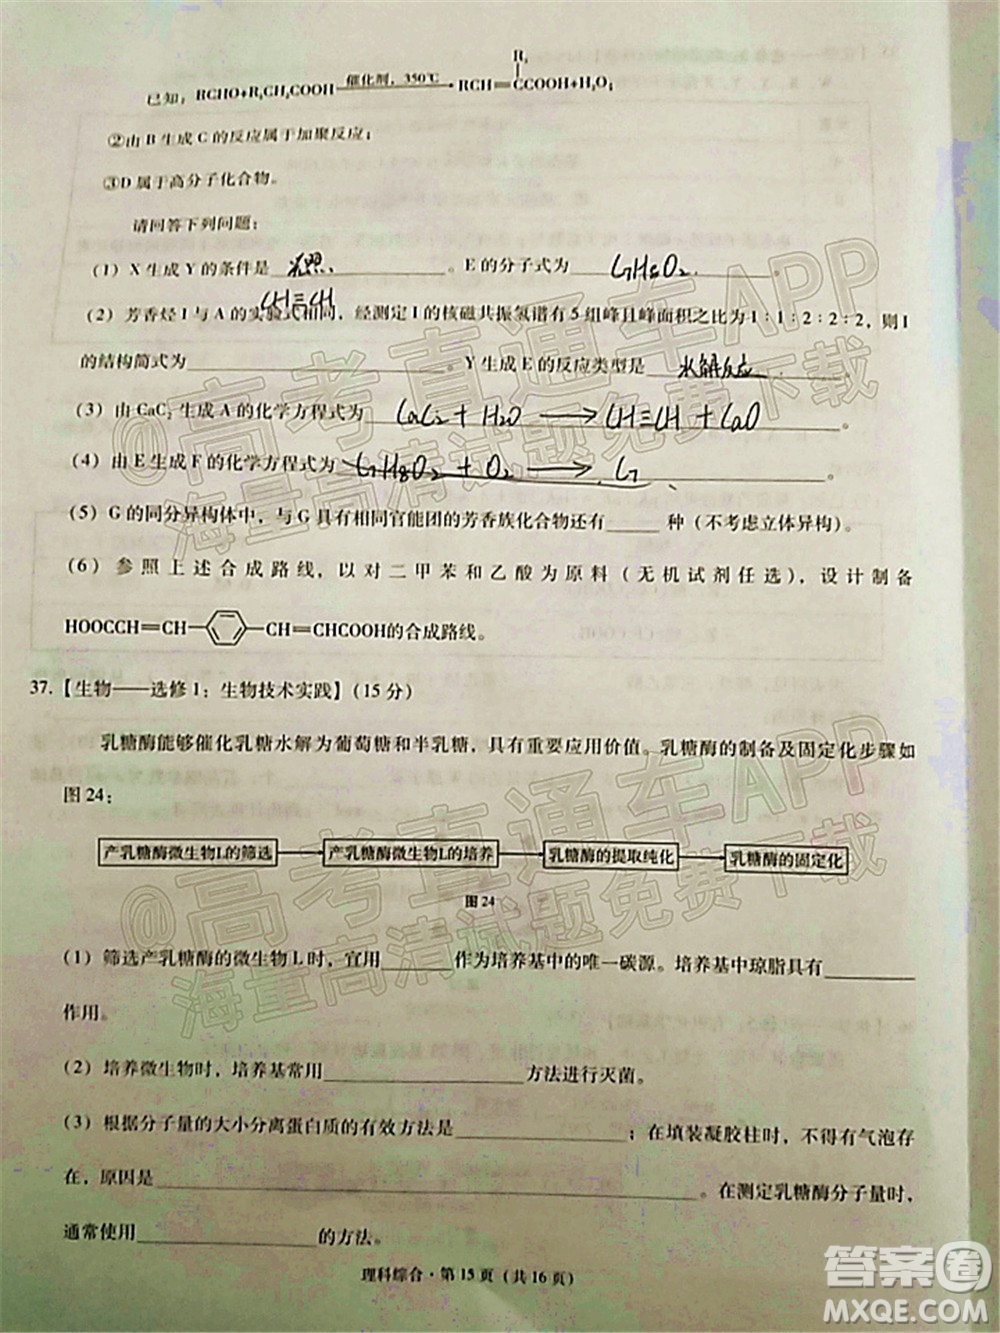 R₁
已知：RCHO+R₁CH₂COOH 催化剂，350℃ RCH＝CCOOH+H₂O；
②由 B 生成 C 的反应属于加聚反应；
③D 属于高分子化合物。
请回答下列问题：
（1）X 生成 Y 的条件是 光照 。E 的分子式为 C7H8O2 。
CH≡CH
（2）芳香烃 I 与 A 的实验式相同，经测定 I 的核磁共振氢谱有 5 组峰且峰面积之比为 1∶1∶2∶2∶2，则 I
的结构简式为 。Y 生成 E 的反应类型是 水解反应 。
（3）由 CaC₂ 生成 A 的化学方程式为 CaC2 + H2O → CH≡CH + CaO 。
（4）由 E 生成 F 的化学方程式为 C7H8O2 + O2 → C7 。
（5）G 的同分异构体中，与 G 具有相同官能团的芳香族化合物还有 种（不考虑立体异构）。
（6）参照上述合成路线，以对二甲苯和乙酸为原料（无机试剂任选），设计制备
HOOCCH＝CH CH＝CHCOOH的合成路线。
37.【生物——选修 1：生物技术实践】（15 分）
乳糖酶能够催化乳糖水解为葡萄糖和半乳糖，具有重要应用价值。乳糖酶的制备及固定化步骤如
图 24：
产乳糖酶微生物L的筛选 产乳糖酶微生物L的培养 乳糖酶的提取纯化 乳糖酶的固定化
图 24
（1）筛选产乳糖酶的微生物 L 时，宜用 作为培养基中的唯一碳源。培养基中琼脂具有
作用。
（2）培养微生物时，培养基常用 方法进行灭菌。
（3）根据分子量的大小分离蛋白质的有效方法是 ；在填装凝胶柱时，不得有气泡存
在，原因是 。在测定乳糖酶分子量时，
通常使用 的方法。
理科综合·第 15 页（共 16 页）
@高考直通车APP
海量高清试题免费下载
@高考直通车APP
海量高清试题免费下载
答案圈
MXQE.COM